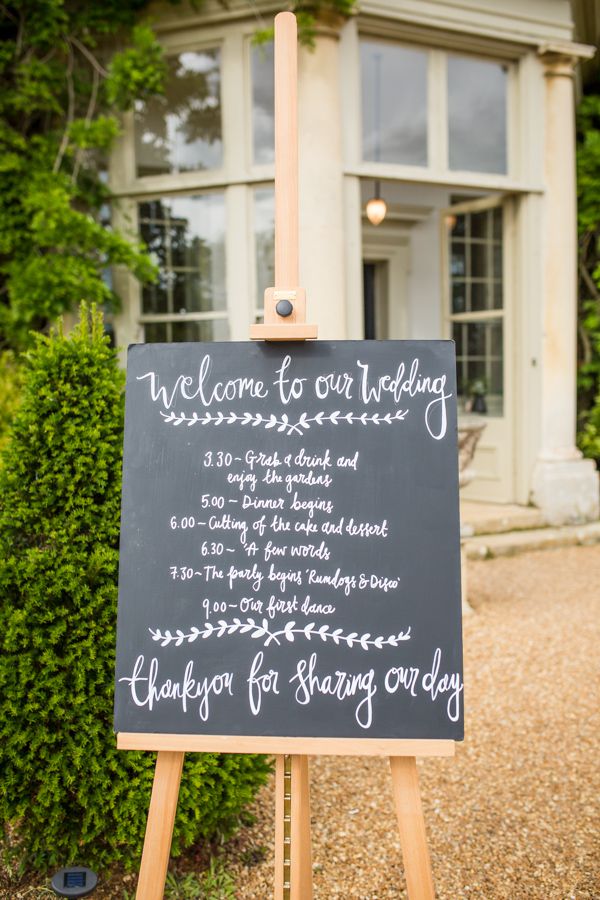 Welcome to our Wedding
3.30~ Grab a drink and
enjoy the gardens
5.00~ Dinner begins
6.00~ Cutting of the cake and dessert
6.30~ 'A few words
7.30~ The party begins 'Rumdogs & Disco'
9.00~ Our first dance
thankyou for sharing our day